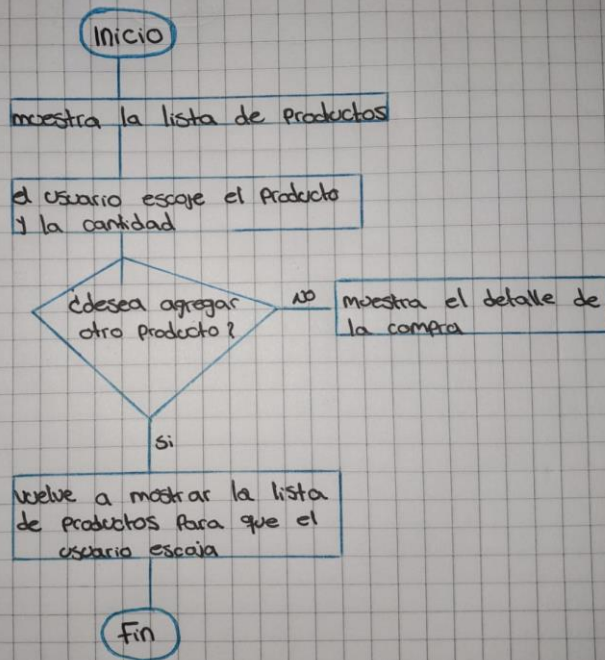 Inicio
muestra la lista de productos
el usuario escoje el producto
y la cantidad
¿desea agregar
otro producto?
NO
muestra el detalle de
la compra
Si
vuelve a mostrar la lista
de productos para que el
usuario escaja
Fin